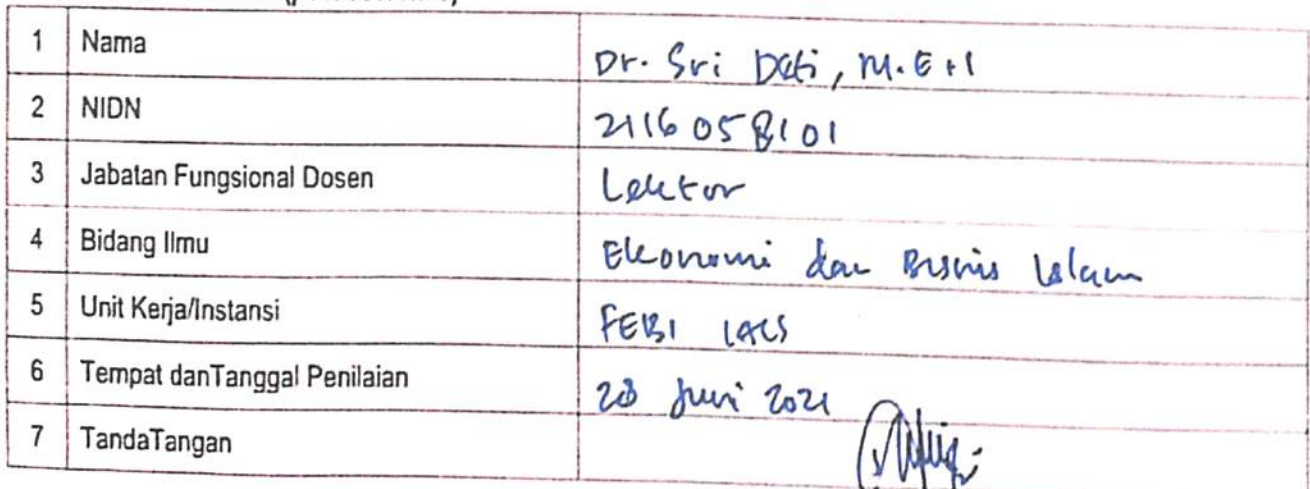 1 Nama Dr. Sri Deti, M.E.I
2 NIDN 2116058101
3 Jabatan Fungsional Dosen Lektor
4 Bidang Ilmu Ekonomi dan Bisnis Islam
5 Unit Kerja/Instansi FEBI IAIS
6 Tempat danTanggal Penilaian 28 Juni 2021
7 TandaTangan